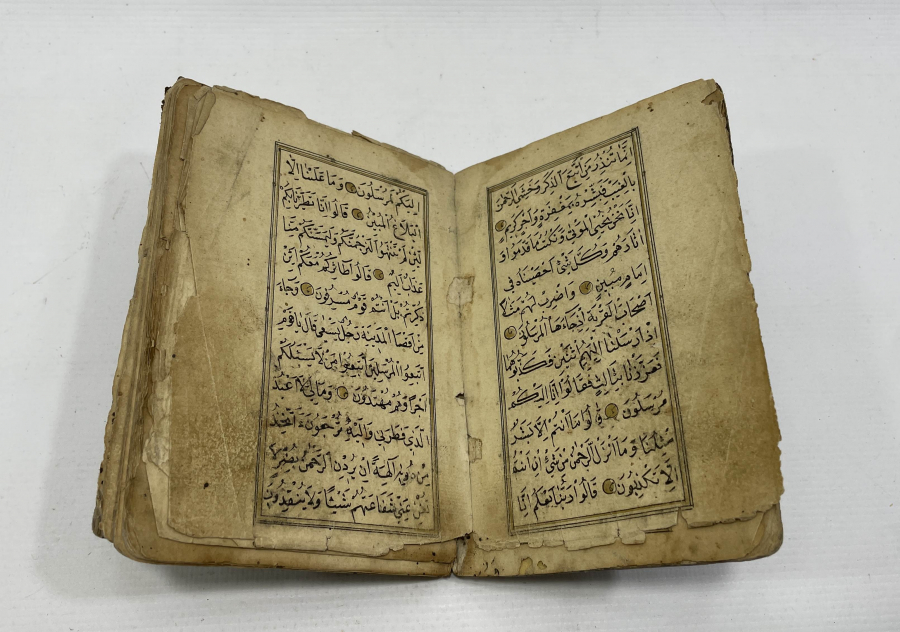 اِنَّمَا تُنْذِرُ مَنِ اتَّبَعَ الذِّكْرَ وَخَشِيَ الرَّحْمٰنَ
بِالْغَيْبِ فَبَشِّرْهُ بِمَغْفِرَةٍ وَاَجْرٍ كَرِيمٍ
اِنَّا نَحْنُ نُحْيِي الْمَوْتٰى وَنَكْتُبُ مَا قَدَّمُوا وَ
اٰثَارَهُمْ وَكُلَّ شَيْءٍ اَحْصَيْنَاهُ فِي
اِمَامٍ مُبِينٍ وَاضْرِبْ لَهُمْ مَثَلًا
اَصْحَابَ الْقَرْيَةِ اِذْ جَاءَهَا الْمُرْسَلُونَ
اِذْ اَرْسَلْنَا اِلَيْهِمُ اثْنَيْنِ فَكَذَّبُوهُمَا
فَعَزَّزْنَا بِثَالِثٍ فَقَالُوا اِنَّا اِلَيْكُمْ
مُرْسَلُونَ قَالُوا مَا اَنْتُمْ اِلَّا بَشَرٌ
مِثْلُنَا وَمَا اَنْزَلَ الرَّحْمٰنُ مِنْ شَيْءٍ اِنْ اَنْتُمْ
اِلَّا تَكْذِبُونَ قَالُوا رَبُّنَا يَعْلَمُ اِنَّا
اِلَيْكُمْ لَمُرْسَلُونَ وَمَا عَلَيْنَا اِلَّا
الْبَلَاغُ الْمُبِينُ قَالُوا اِنَّا تَطَيَّرْنَا بِكُمْ
لَئِنْ لَمْ تَنْتَهُوا لَنَرْجُمَنَّكُمْ وَلَيَمَسَّنَّكُمْ مِنَّا
عَذَابٌ اَلِيمٌ قَالُوا طَائِرُكُمْ مَعَكُمْ اَئِنْ
ذُكِّرْتُمْ بَلْ اَنْتُمْ قَوْمٌ مُسْرِفُونَ وَجَاءَ
مِنْ اَقْصَا الْمَدِينَةِ رَجُلٌ يَسْعٰى قَالَ يَا قَوْمِ
اتَّبِعُوا الْمُرْسَلِينَ اتَّبِعُوا مَنْ لَا يَسْئَلُكُمْ
اَجْرًا وَهُمْ مُهْتَدُونَ وَمَا لِيَ لَا اَعْبُدُ
الَّذِي فَطَرَنِي وَاِلَيْهِ تُرْجَعُونَ ءَاَتَّخِذُ
مِنْ دُونِهِ اٰلِهَةً اِنْ يُرِدْنِ الرَّحْمٰنُ بِضُرٍّ لَا
تُغْنِ عَنِّي شَفَاعَتُهُمْ شَيْئًا وَلَا يُنْقِذُونِ